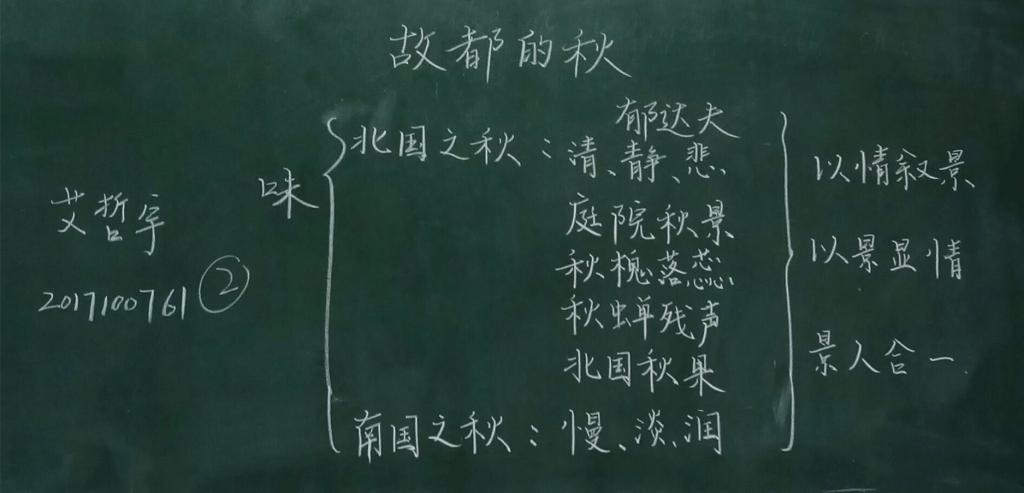 故都的秋
郁达夫
味
北国之秋：清、静、悲
庭院秋景
秋槐落蕊
秋蝉残声
北国秋果
南国之秋：慢、淡、润
以情叙景
以景显情
景人合一
艾哲宇
2017100761 ②